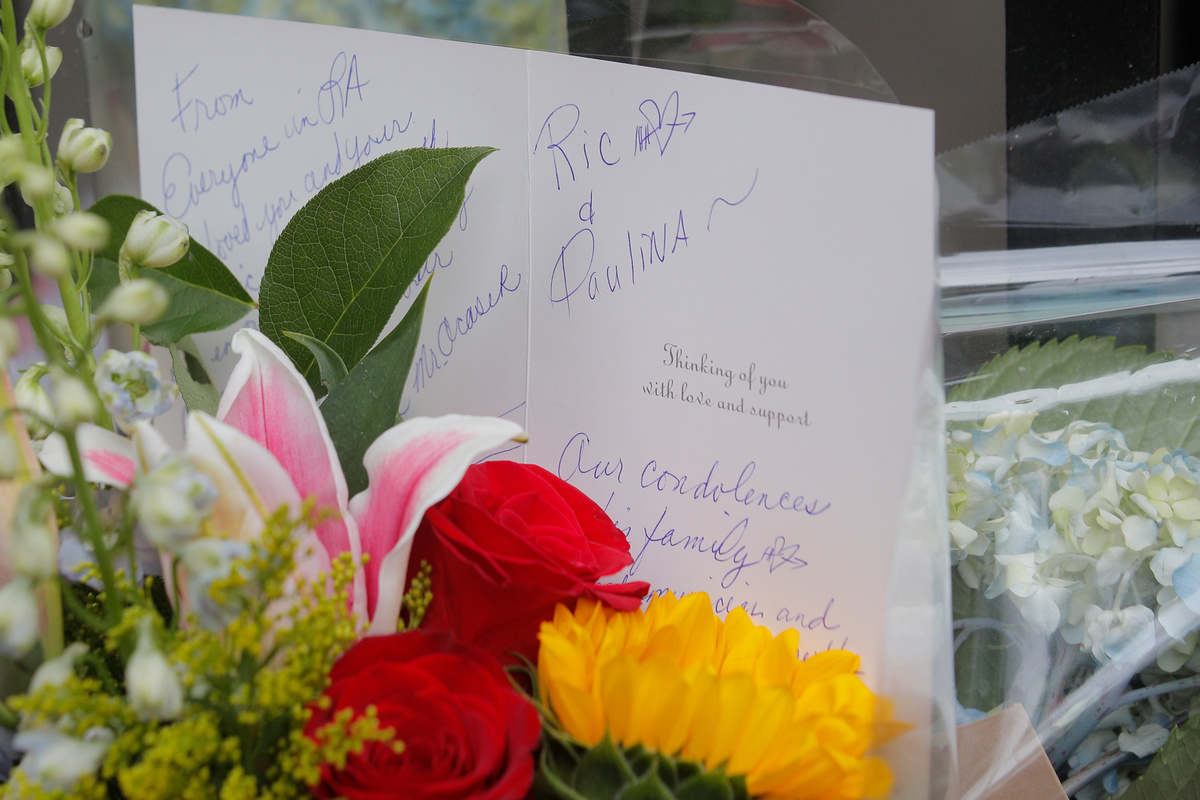 From
Everyone in LA
loved you and your
Mr. Ocasek
Ric
&
Paulina
Thinking of you
with love and support
Our condolences
family
and